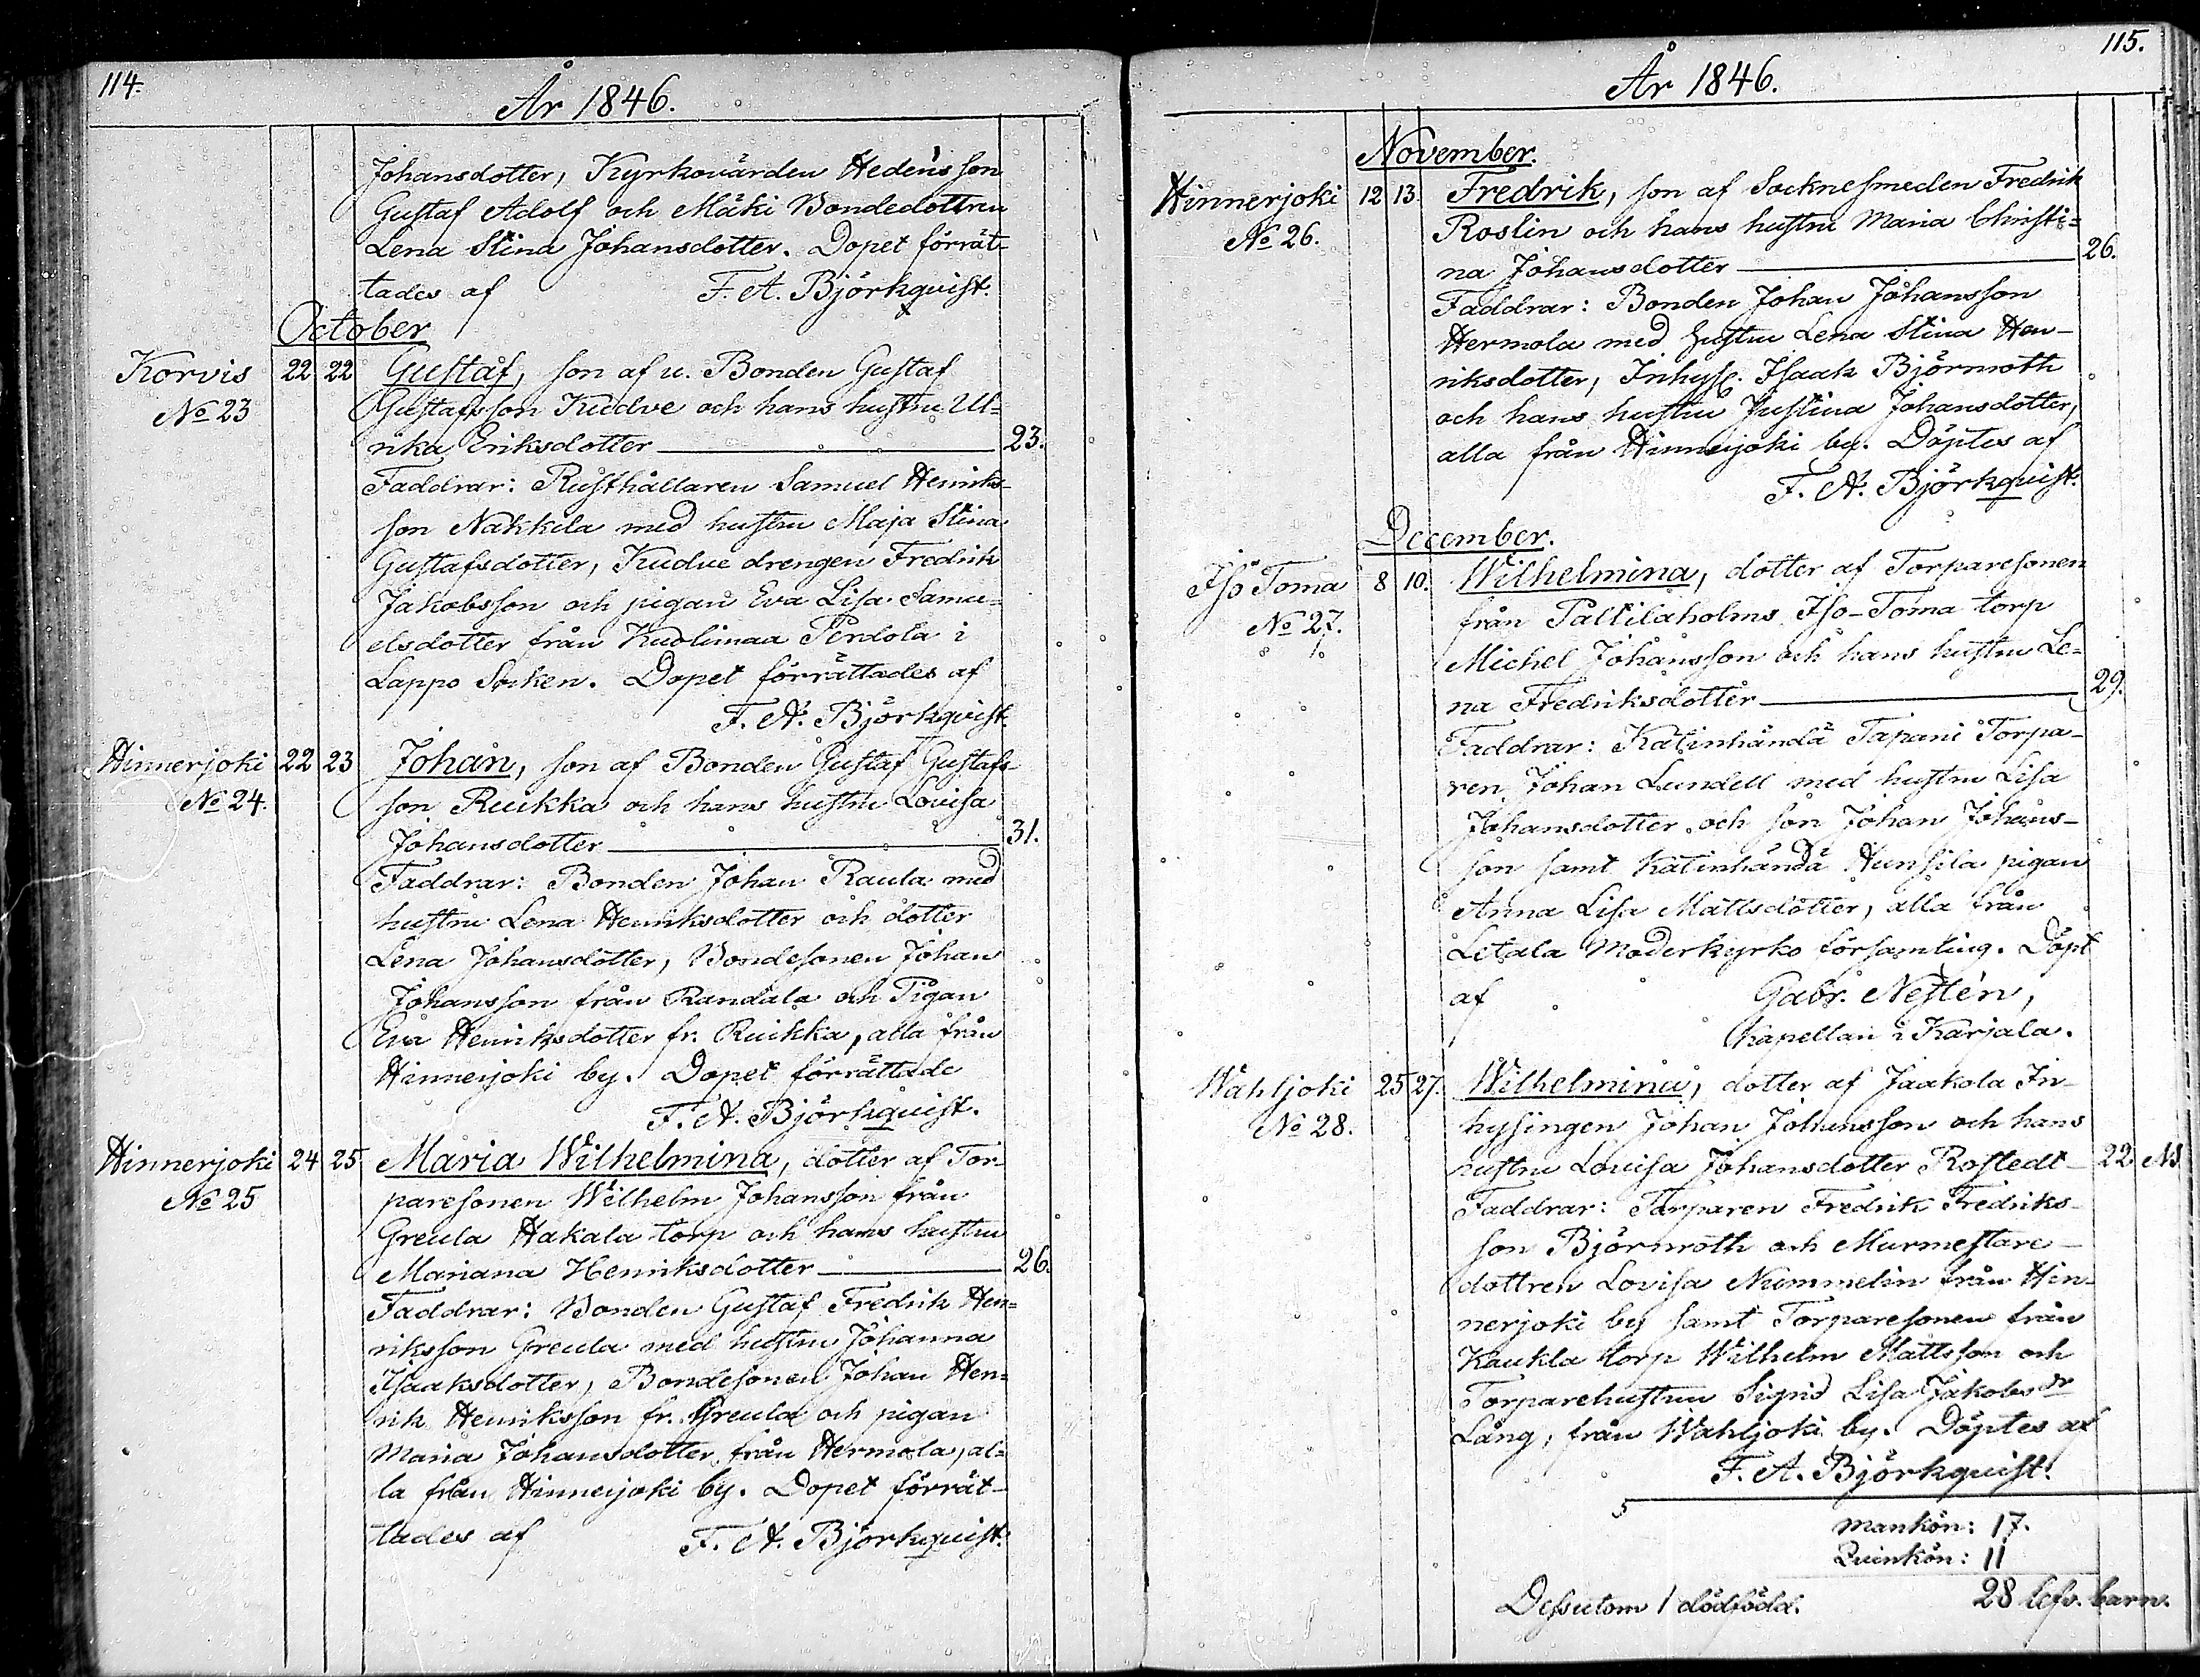 114.
År 1846.
Johansdotter, Kyrkovärden Hedéns son
Gustaf Adolf och Mäki Bondedottren
Lena Stina Johansdotter. Dopet förrät-
tades af F. A. Björkqvist.
October
Korvis 22 22 Gustaf, son af u. Bonden Gustaf
No 23 Gustafsson Kudve och hans hustru Ul=
rika Eriksdotter 23.
Faddrar: Rusthållaren Samuel Henriks-
son Nakkila med hustru Maja Stina
Gustafsdotter, Kudve drengen Fredrik
Jakobsson och pigan Eva Lisa Samu=
elsdotter från Kuolimaa Perdola i
Lappo Socken. Dopet förrättades af
F. A. Björkqvist.
Hinnerjoki 22 23 Johan, son af Bonden Gustaf Gustafs-
No 24. son Ruikka och hans hustru Lovisa
Johansdotter 31.
Faddrar: Bonden Johan Raula med
hustru Lena Henriksdotter och dotter
Lena Johansdotter, Bondesonen Johan
Johansson från Randala och Pigan
Eva Henriksdotter fr. Ruikka, alla från
Hinnerjoki by. Dopet förrättade
F. A. Björkqvist.
Hinnerjoki 24 25 Maria Wilhelmina, dotter af Tor-
No 25 paresonen Wilhelm Johansson från
Greula Hakala torp och hans hustru
Mariana Henriksdotter 26.
Faddrar: Bonden Gustaf Fredrik Hen=
riksson Greula med hustru Johanna
Isaaksdotter, Bondesonen Johan Hen=
rik Henriksson fr. Greula och pigan
Maria Johansdotter från Hermola, al=
la från Hinnerjoki by. Dopet förrät-
tades af F. A. Björkqvist.
115.
År 1846.
November.
Hinnerjoki 12 13. Fredrik, son af Socknesmeden Fredrik
No 26. Roslin och hans hustru Maria Christi=
na Johansdotter 26.
Faddrar: Bonden Johan Johansson
Hermola med hustru Lena Stina Hen-
riksdotter, Inhys. Isaak Björnroth
och hans hustru Justina Johansdotter,
alla från Hinnerjoki by. Döptes af
F. A. Björkqvist.
December.
Iso Toma 8 10. Wilhelmina, dotter af Torparesonen
No 27. från Pallilaholms Iso-Toma torp
Michel Johansson och hans hustru Le=
na Fredriksdotter 29.
Faddrar: Katinhändä Tapani Torpa-
ren Johan Lundell med hustru Lisa
Johansdotter och son Johan Johans-
son samt Katinhändä Hunsila pigan
Anna Lisa Mattsdotter, alla från
Letala Moderkyrko församling. Döpt
af Gabr. Neslén,
Kapellan i Karjala.
Wahljoki 25 27. Wilhelmina, dotter af Jaakola In-
No 28. hysingen Johan Johansson och hans
hustru Lovisa Johansdotter Rostedt 22
Faddrar: Torparen Fredrik Fredriks-
son Björnroth och Murmestare-
dottren Lovisa Nummelin från Hin-
nerjoki by samt Torparesonen från
Kaukla torp Wilhelm Mattsson och
Torparehustrun Sigrid Lisa Jakobsdr
Lång, från Wahljoki by. Döptes af
F. A. Björkqvist.
Mankön: 17.
Quinkön: 11
28 lefv. barn.
Dessutom 1 dödfödd.